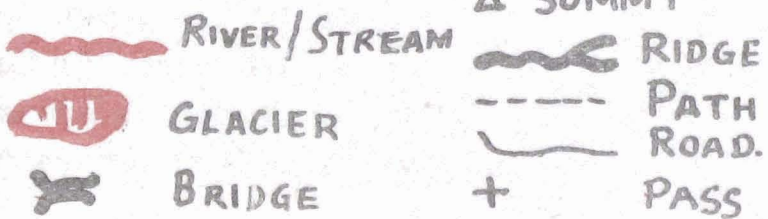 RIVER/STREAM
GLACIER
BRIDGE
RIDGE
PATH
ROAD.
PASS